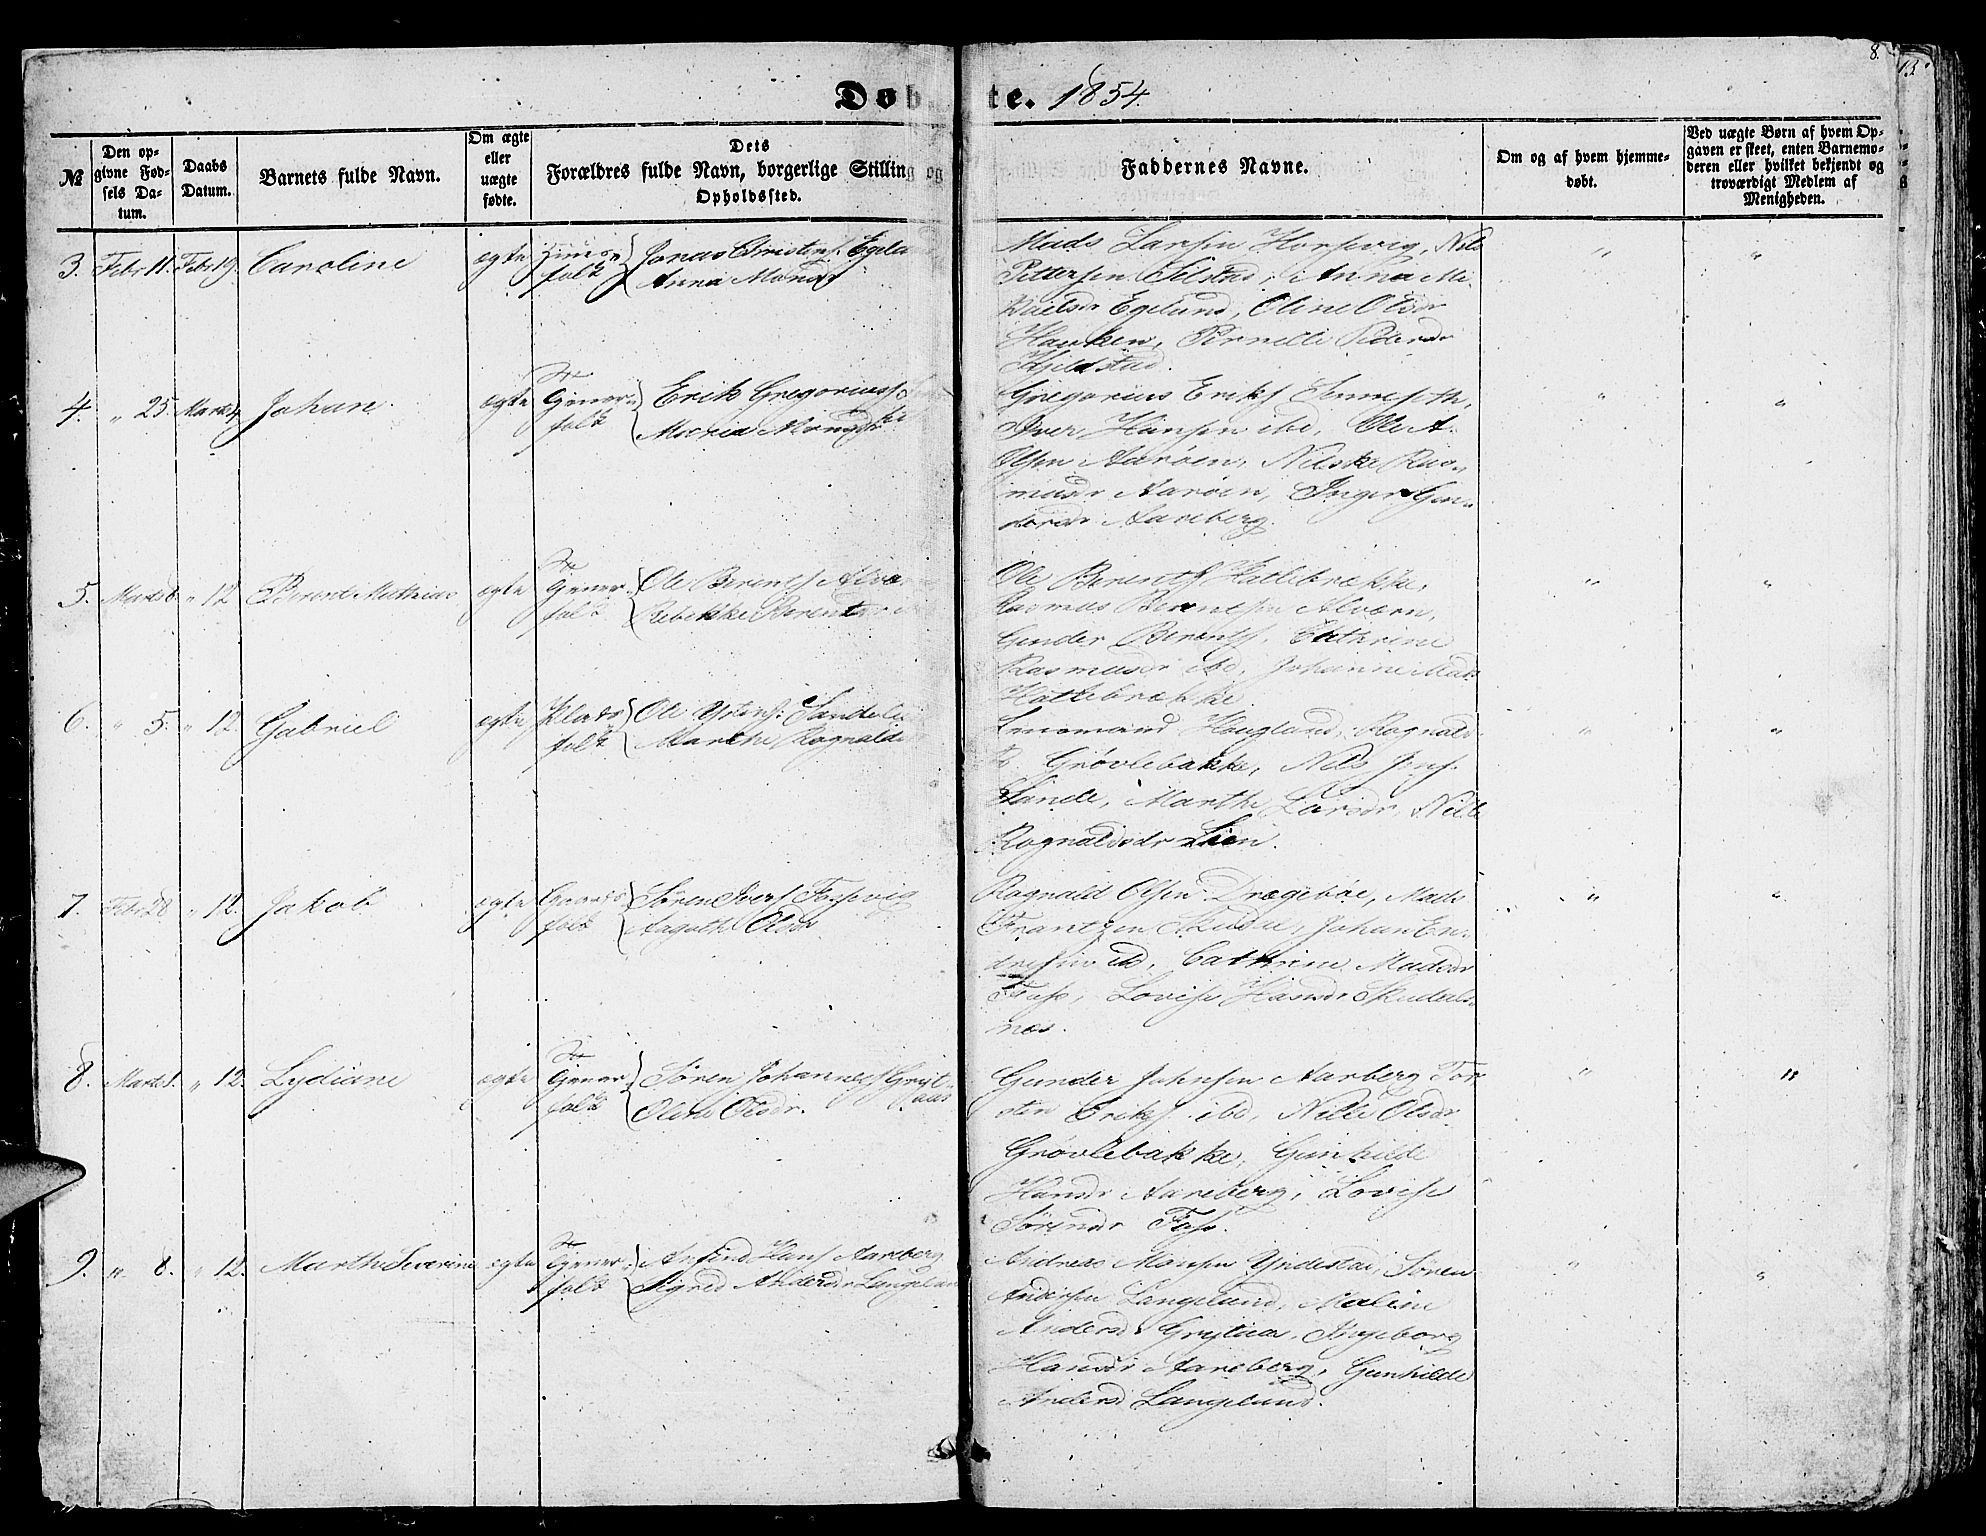 8.
Døb te. 1854.
№
Den op-
givne Fød-
sels Da-
tum.
Daabs
Datum.
Barnets fulde Navn.
Om ægte
eller
uægte
fødte.
Dets
Forældres fulde Navn, borgerlige Stilling og
Opholdssted.
Faddernes Navne.
Om og af hvem hjemme-
døbt.
Ved uægte Børn af hvem Op-
gaven er skeet, enten Barnemo-
deren eller hvilket bekjendt og
troværdigt Medlem af
Menigheden.
3. Febr 11. Febr 19. Caroline ægte folk Jonas Christens. Egelund
Anna Monsd
Mads Larsen Horsevig, Nils
Pettersen Selstad, Anna Mi-
kaelsdr Egelund, Oline Olsdr
Hauken, Pernille Pedersdr
Hjelstad.
4. " 25. Marts 4 Johan. ægte Gaard folk Erik Gregoriuss.
Maria Monsdr
Gregorius Eriks
Iver Hansen ibd, Ole A.
Olsen Aarøen, Nilske Ras-
musdr Aarøen, Inger Gun-
dersdr Aareberg.
5. Marts 6. " 12 Berent Mathias ægte folk Ole Berents Alvæ
Rebekke Berentsdr
Ole Berents Hatlebrække,
Rasmus Berentsen Alværn,
Gunder Berents, Cathrine
Rasmusdr ibd, Johanne Mads
Hatlebrække
6. " 5. " 12. Gabriel ægte Plads folk Ole Sande
Marthe Rognalds
Lensmand Haugland, Rognald
Grøvlebakke, Nils Jens.
Sande, Marthe Larsdr, Nille
Rognaldsdr Lien.
7. Febr 28 " 12. Jakob ægte Gaards folk Søren Ivers Fossevig
Aagathe Olsdr
Rognald Olsen Drægebøe, Mads
Frantzen Skudal, Johan En-
dresen ibd, Cathrine Madsdr
Foss, Lovise Hansdr Skudals-
nes.
8. Marts 1. " 12. Lydiane ægte folk Søren Johannes Gryt-
aas
Oline Olsdr.
Gunder Johnsen Aarberg Tor-
sten Eriks. ibd, Nille Olsdr
Grøvlebakke, Gunhilde
Hansdr Aareberg, Lovise
Sørensdr Foss.
9. " 8. " 12. Marthe Severine ægte folk Anfind Hans Aareberg
Sigrid Andersdr Langeland
Andreas Monsen Yndestad, Søren
Andersen Langeland, Maline
Andersd Grytaas, Ingeborg
Hansdr Aareberg, Gunhilde
Andersd Langeland.